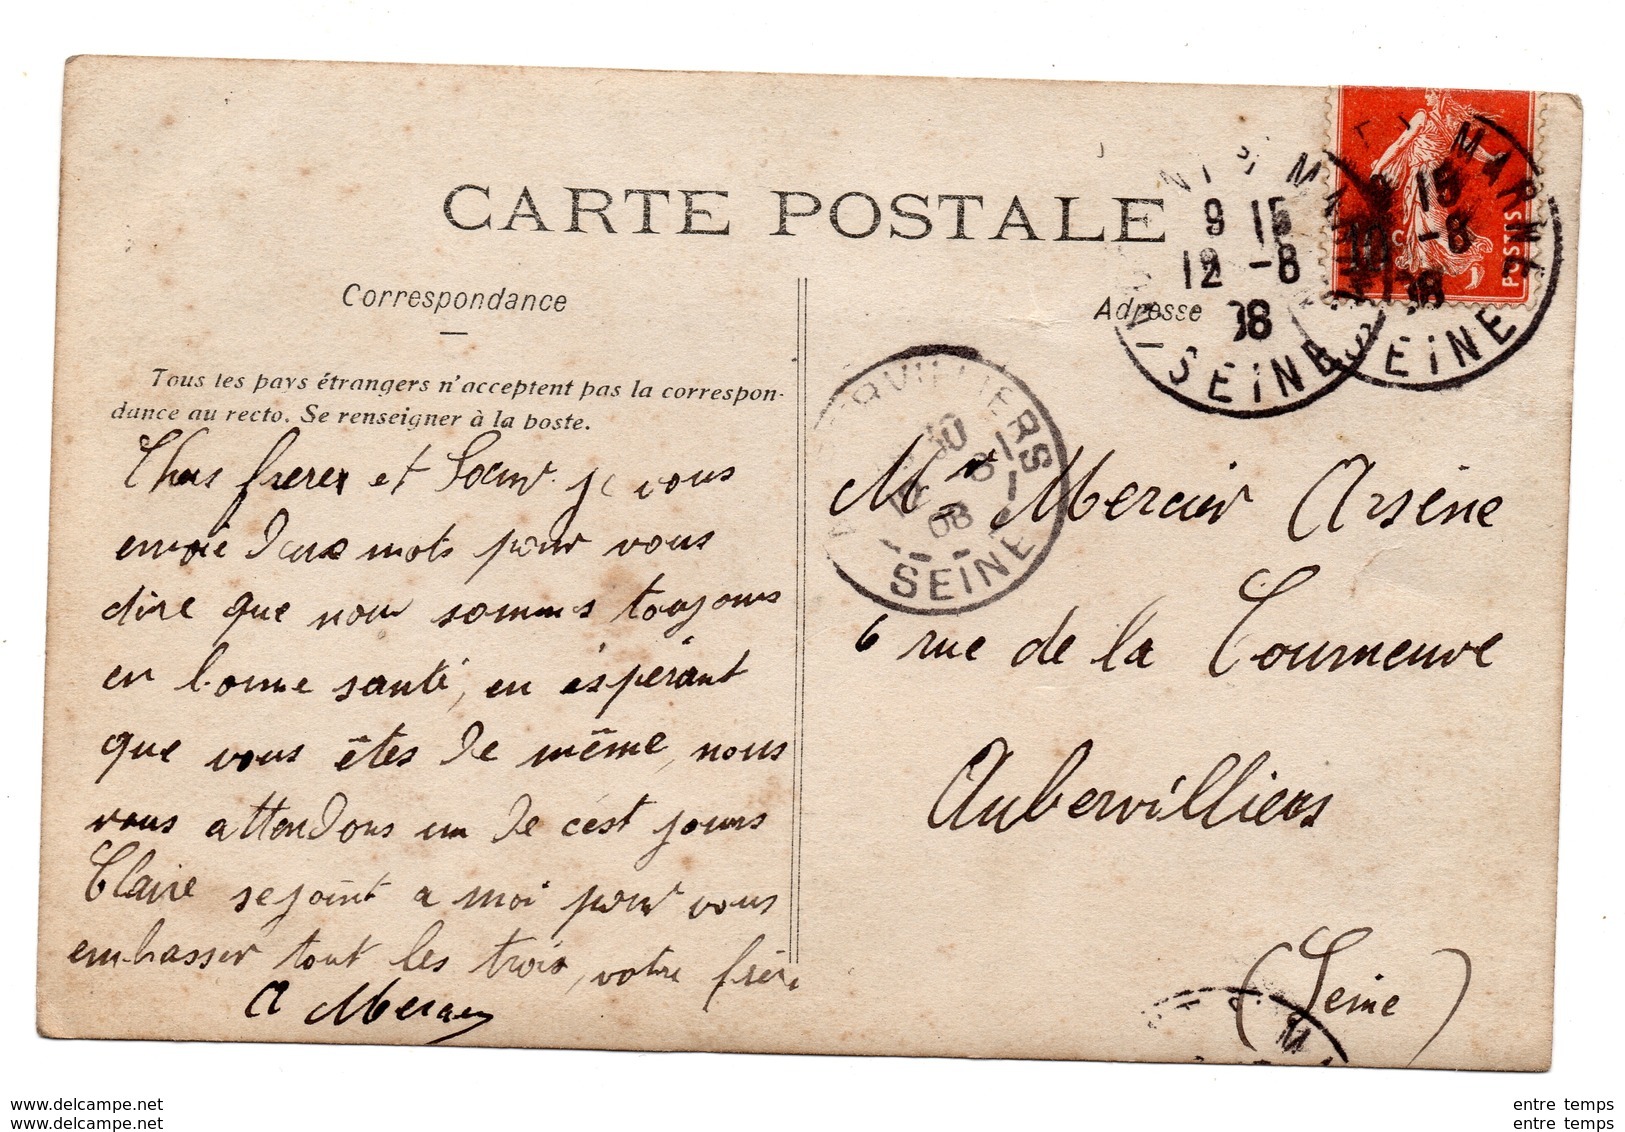 CARTE POSTALE
Correspondance
Adresse
Tous les pays étrangers n'acceptent pas la correspon-
dance au recto. Se renseigner à la poste.
Chers frere et Soeur je vous
envoie deux mots pour vous
dire que nous sommes toujours
en bonne santé, en éspérant
que vous êtes de même, nous
vous attendons un de cest jours
Claire se joint a moi pour vous
embrasser tout les trois, votre frère
A Mercier
Mr Mercier Arsène
6 rue de la Courneuve
Aubervilliers
(Seine)
9 15
12 -8
08
SEINE
15
-8
08
SEINE
POSTES
10c
AUBERVILLIERS
30
8
08
SEINE
www.delcampe.net
www.delcampe.net
entre temps
entre temps